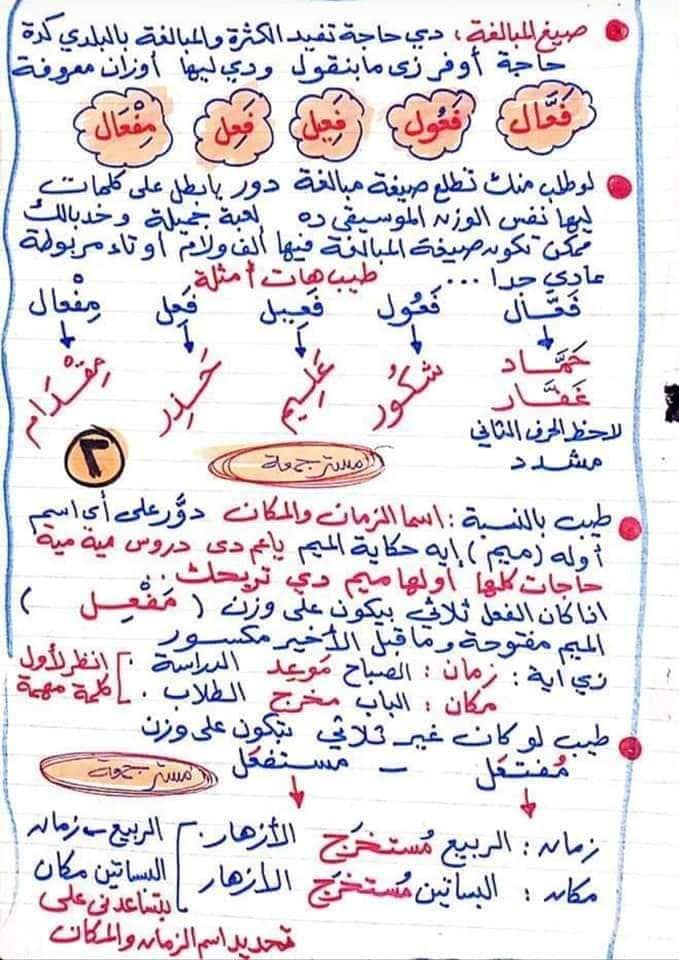 صيغ المبالغة : دي حاجة تفيد الكثرة والمبالغة بالبلدي كدة
حاجة أوفر زى ما بنقول ودي ليها أوزان معروفة
فَعَّال فَعُول فَعِيل فَعِل مِفْعَال
لو طلب منك تطلع صيغة مبالغة دور يا بطل على كلمات
ليها نفس الوزن الموسيقى ده لعبة جميلة وخد بالك
ممكن تكون صيغة المبالغة فيها ألف ولام أو تاء مربوطة
عادي جدا ... طيب هات أمثلة
فَعَّال فَعُول فَعِيل فَعِل مِفْعَال
حَمَّاد شكُور عَلِيم حَذِر مِقْدَام
غَفَّار
لاحظ الحرف الثاني
مشدد
مستر جمعة
٢
طيب بالنسبة : اسما الزمان والمكان دوَّر على أي اسم
أوله (ميم) إيه حكاية الميم يا عم دى دروس مية مية
حاجات كلها أولها ميم دي تريحك .
اذا كان الفعل ثلاثي بيكون على وزن ( مَفْعِل )
الميم مفتوحة وما قبل الأخير مكسور
زي اية : زمان : الصباح مَوعِد الدراسة . انظر لأول
مكان : الباب مخرج الطلاب . كلمة مهمة
طيب لو كان غير ثلاثي بتكون على وزن
مُفتَعَل – مستفعَل
مستر جمعة
زمان : الربيع مُستخرَج الأزهار . الربيع ← زمان
مكان : البساتين مُستخرَج الأزهار البساتين مكان
بتساعدني على
تحديد اسم الزمان والمكان